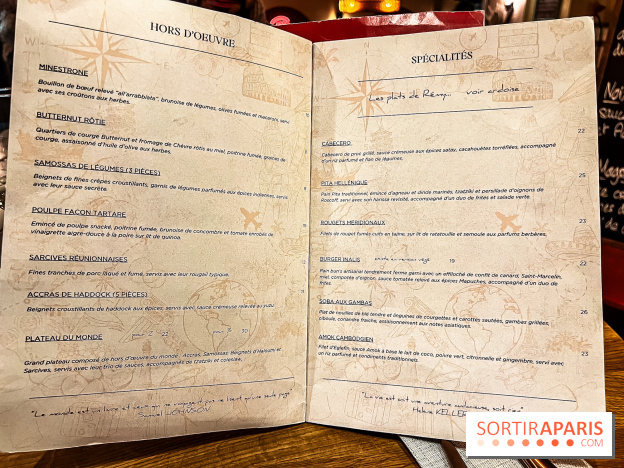 HORS D'OEUVRE
MINESTRONE
Bouillon de bœuf relevé "all'arrabbiata", brunoise de légumes, olives fumées et macaroni, servi
avec ses croûtons aux herbes.
BUTTERNUT RÔTIE
Quartiers de courge Butternut et fromage de Chèvre rôtis au miel, poitrine fumée, graines de
courge, assaisonné d'huile d'olive aux herbes.
SAMOSSAS DE LÉGUMES (3 PIÈCES)
Beignets de fines crêpes croustillants, garnis de légumes parfumés aux épices indiennes, servis
avec leur sauce secrète.
POULPE FAÇON TARTARE
Emincé de poulpe snacké, poitrine fumée, brunoise de concombre et tomate enrobés de
vinaigrette aigre-douce à la poire sur lit de quinoa.
SARCIVES RÉUNIONNAISES
Fines tranches de porc laqué et fumé, servis avec leur rougail typique.
ACCRAS DE HADDOCK (5 PIÈCES)
Beignets croustillants de haddock aux épices, servis avec sauce crémeuse relevée au yuzu
PLATEAU DU MONDE pour 2 22 30
Grand plateau composé de hors d'œuvre du monde : Accras, Samossas, Beignets d'Halloumi et
Sarcives, servis avec leur trio de sauces, accompagnés de tzatziki et coleslaw.
"Le monde est un livre et ceux qui ne voyagent pas ne lisent qu'une seule page"
Samuel JOHNSON
SPÉCIALITÉS
Les plats de Rémy... voir ardoise
22
CABECERO
Cabecero de porc grillé, sauce crémeuse aux épices satay, cacahouètes torréfiées, accompagné
d'un riz parfumé et flan de légumes.
25
PITA HELLÉNIQUE
Pain Pita traditionnel, émincé d'agneau et dinde marinés, tzatziki et persillade d'oignons de
Roscoff, servi avec son harissa revisité, accompagné d'un duo de frites et salade verte.
23
ROUGETS MÉRIDIONAUX
Filets de rouget fumés cuits en tajine, sur lit de ratatouille et semoule aux parfums berbères.
BURGER INALIS existe en version végé 19 22
Pain burn's artisanal tendrement ferme garni avec un effiloché de confit de canard, Saint-Marcelin,
miel, compotée d'oignon, sauce tomatée relevé aux épices Mapuches, accompagné d'un duo de
frites.
26
SOBA AUX GAMBAS
Plat de nouilles de blé tendre et linguines de courgettes et carottes sautées, gambas grillées,
ciboule, coriandre fraiche, assaisonnement aux notes asiatiques.
23
AMOK CAMBODGIEN
Filet d'Eglefin, sauce Amok à base le lait de coco, poivre vert, citronnelle et gingembre, servi avec
un riz parfumé et condiments traditionnels.
"La vie est soit une aventure audacieuse, soit rien"
Helen KELLER
SORTIRAPARIS
.com